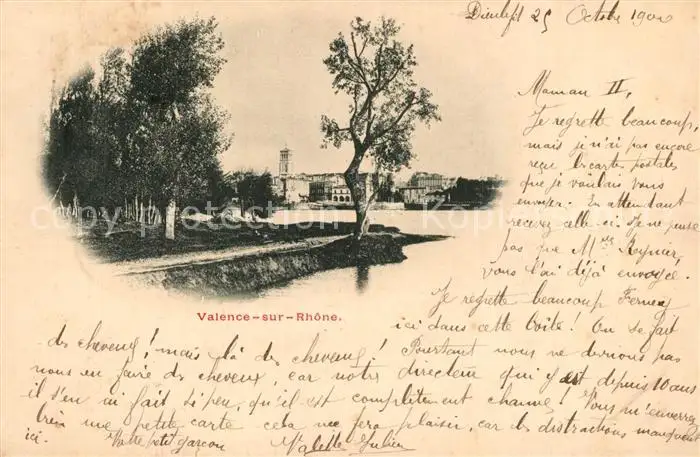 Dieulefit 25 Octobre 1900
Maman II,
Je regrette beaucoup,
mais je n'ai pas encore
reçu les cartes postales
que je voulais vous
envoyer. En attendant
recevez celle-ci. Je ne pense
pas que Mr Reynier
vous l'ai déjà envoyée.
Je regrette beaucoup Ferney
ici dans cette boîte! On se fait
des cheveux! mais là des cheveux! Pourtant nous ne devrions pas
nous en faire des cheveux, car notre directeur qui y est depuis 10 ans
il s'en ai fait si peu, qu'il est complètement chauve! Vous m'enverrez
bien une petite carte cela me fera plaisir, car les distractions manquent
ici. Votre petit garçon Valette Julien
Valence-sur-Rhône.
© copyright